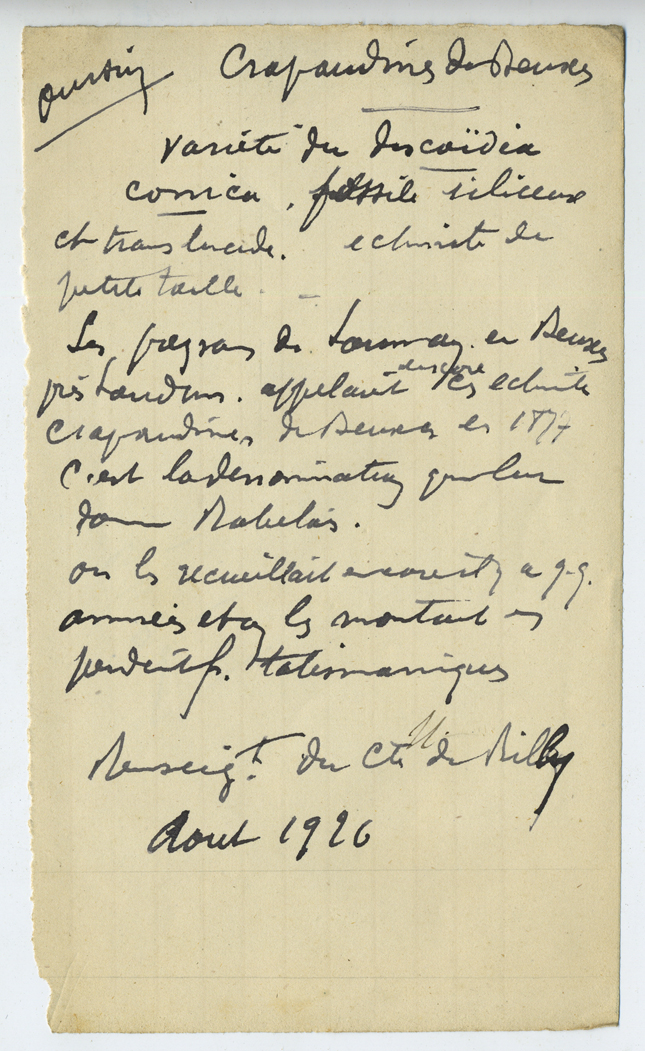 oursin
Crapaudines de Beuxes
Variété du discoïdea
conica, fossile siliceux
et translucide. echinite de
petite taille.
Les paysans de en Beuxes
près Loudun. appelaient encore ces echinites
crapaudines de Beuxes en 1877
C'est la dénomination que leur
donne Rabelais.
on les recueillait encore il y a q.q.
années et on les montait en
pendentifs. talismaniques
Renseigt. du Cte de Rilly
Aout 1926